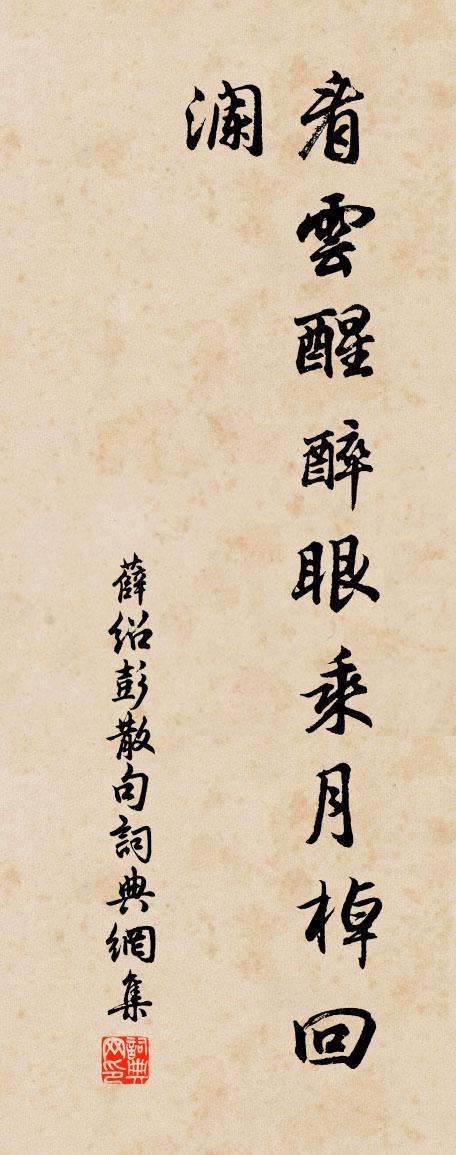 看雲醒醉眼乘月棹回
澜
薛绍彭散句詞典網集
詞典网印